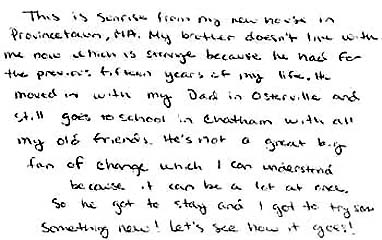 This is sunrise from my new house in
Provincetown, MA. My brother doesn't live with
me now which is strange because he had for
the previous fifteen years of my life. He
moved in with my Dad in Osterville and
still goes to school in Chatham with all
my old friends. He's not a great big
fan of change which I can understand
because it can be a lot at once.
So he got to stay and I got to try some
something new! Let's see how it goes!